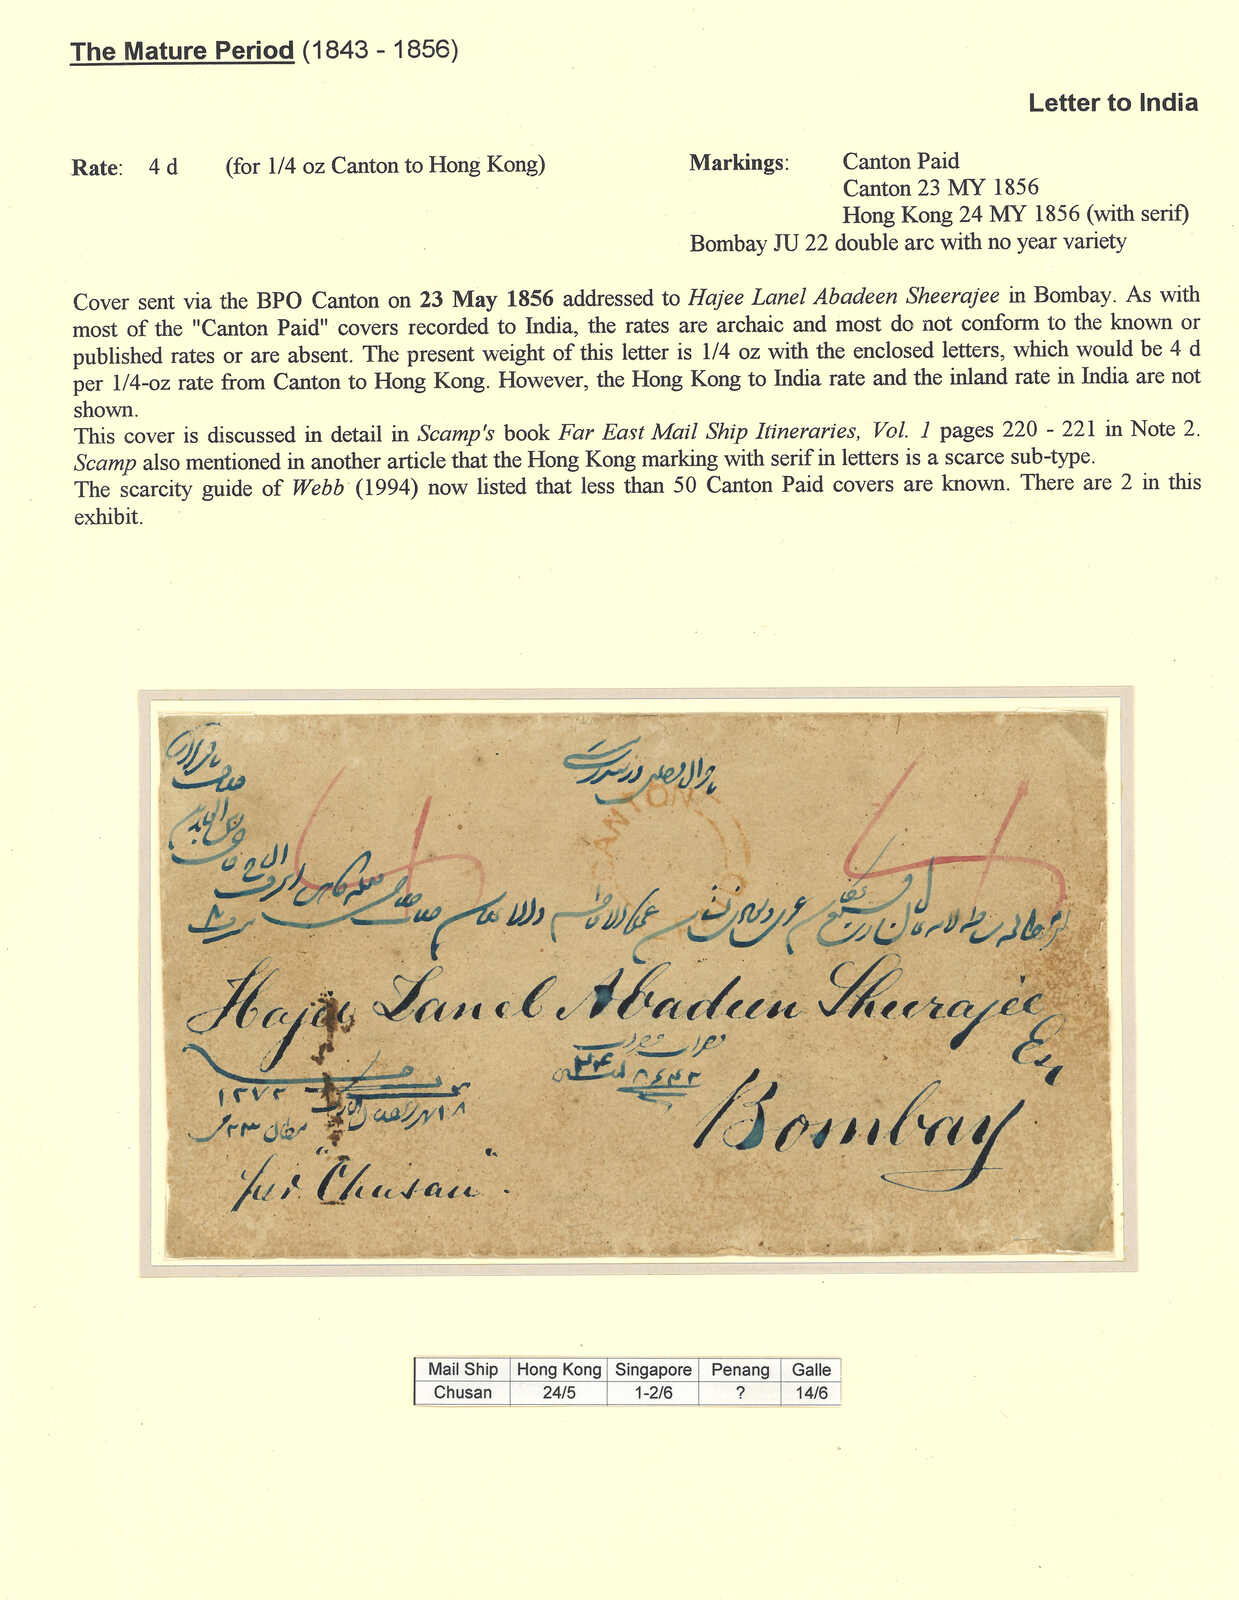 The Mature Period (1843 - 1856)
Letter to India
Rate: 4 d (for 1/4 oz Canton to Hong Kong)
Markings: Canton Paid
Canton 23 MY 1856
Hong Kong 24 MY 1856 (with serif)
Bombay JU 22 double arc with no year variety
Cover sent via the BPO Canton on 23 May 1856 addressed to Hajee Lanel Abadeen Sheerajee in Bombay. As with
most of the "Canton Paid" covers recorded to India, the rates are archaic and most do not conform to the known or
published rates or are absent. The present weight of this letter is 1/4 oz with the enclosed letters, which would be 4 d
per 1/4-oz rate from Canton to Hong Kong. However, the Hong Kong to India rate and the inland rate in India are not
shown.
This cover is discussed in detail in Scamp's book Far East Mail Ship Itineraries, Vol. 1 pages 220 - 221 in Note 2.
Scamp also mentioned in another article that the Hong Kong marking with serif in letters is a scarce sub-type.
The scarcity guide of Webb (1994) now listed that less than 50 Canton Paid covers are known. There are 2 in this
exhibit.
CANTON
4 4
Hajee Lanel Abadeen Sheerajee
Esq
۱۲۷۲
Bombay
per "Chusan".
Mail Ship Hong Kong Singapore Penang Galle
Chusan 24/5 1-2/6 ? 14/6